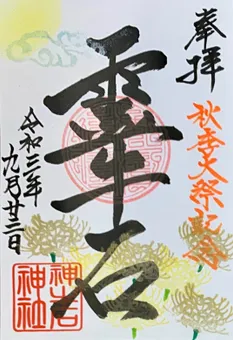 奉拝
秋季大祭記念
石
令和三年
九月廿三日
神社